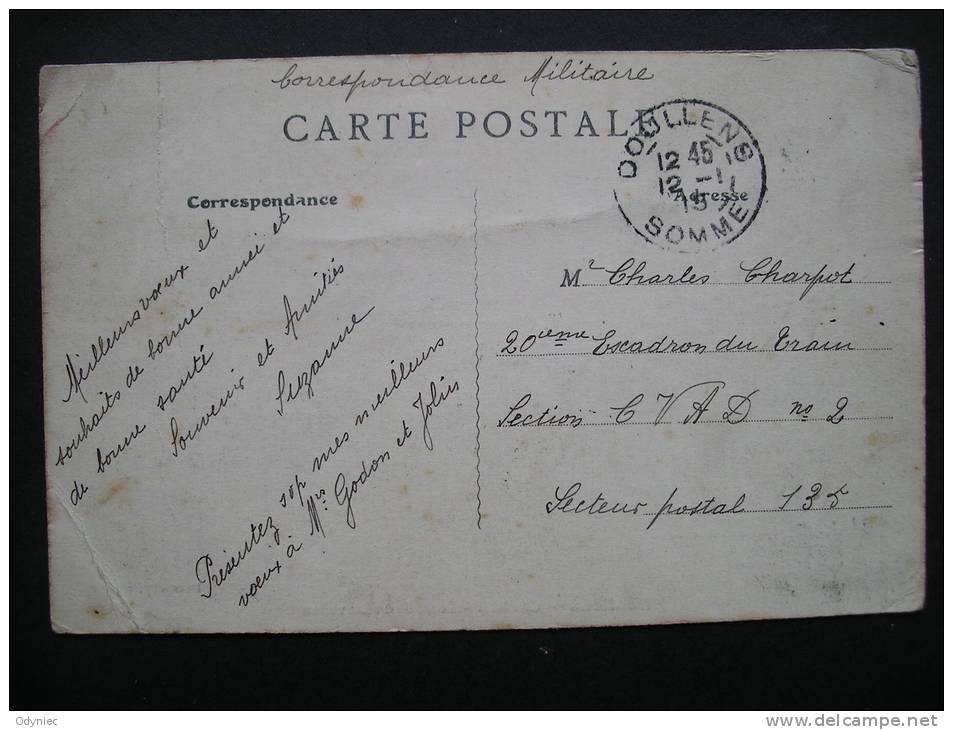 Correspondance Militaire
CARTE POSTALE
DOULLENS
12 45
12 - 1
15
SOMME
Correspondance
Adresse
Meilleurs vœux et
souhaits de bonne année et
de bonne santé
Souvenir et Amitiés
Suzanne
Présentez sop mes meilleurs
vœux à Mrs Godon et Jolin
Mr Charles Charpot
20ième Escadron du Train
Section C V A D no 2
Secteur postal 135
Odyniec
www.delcampe.net